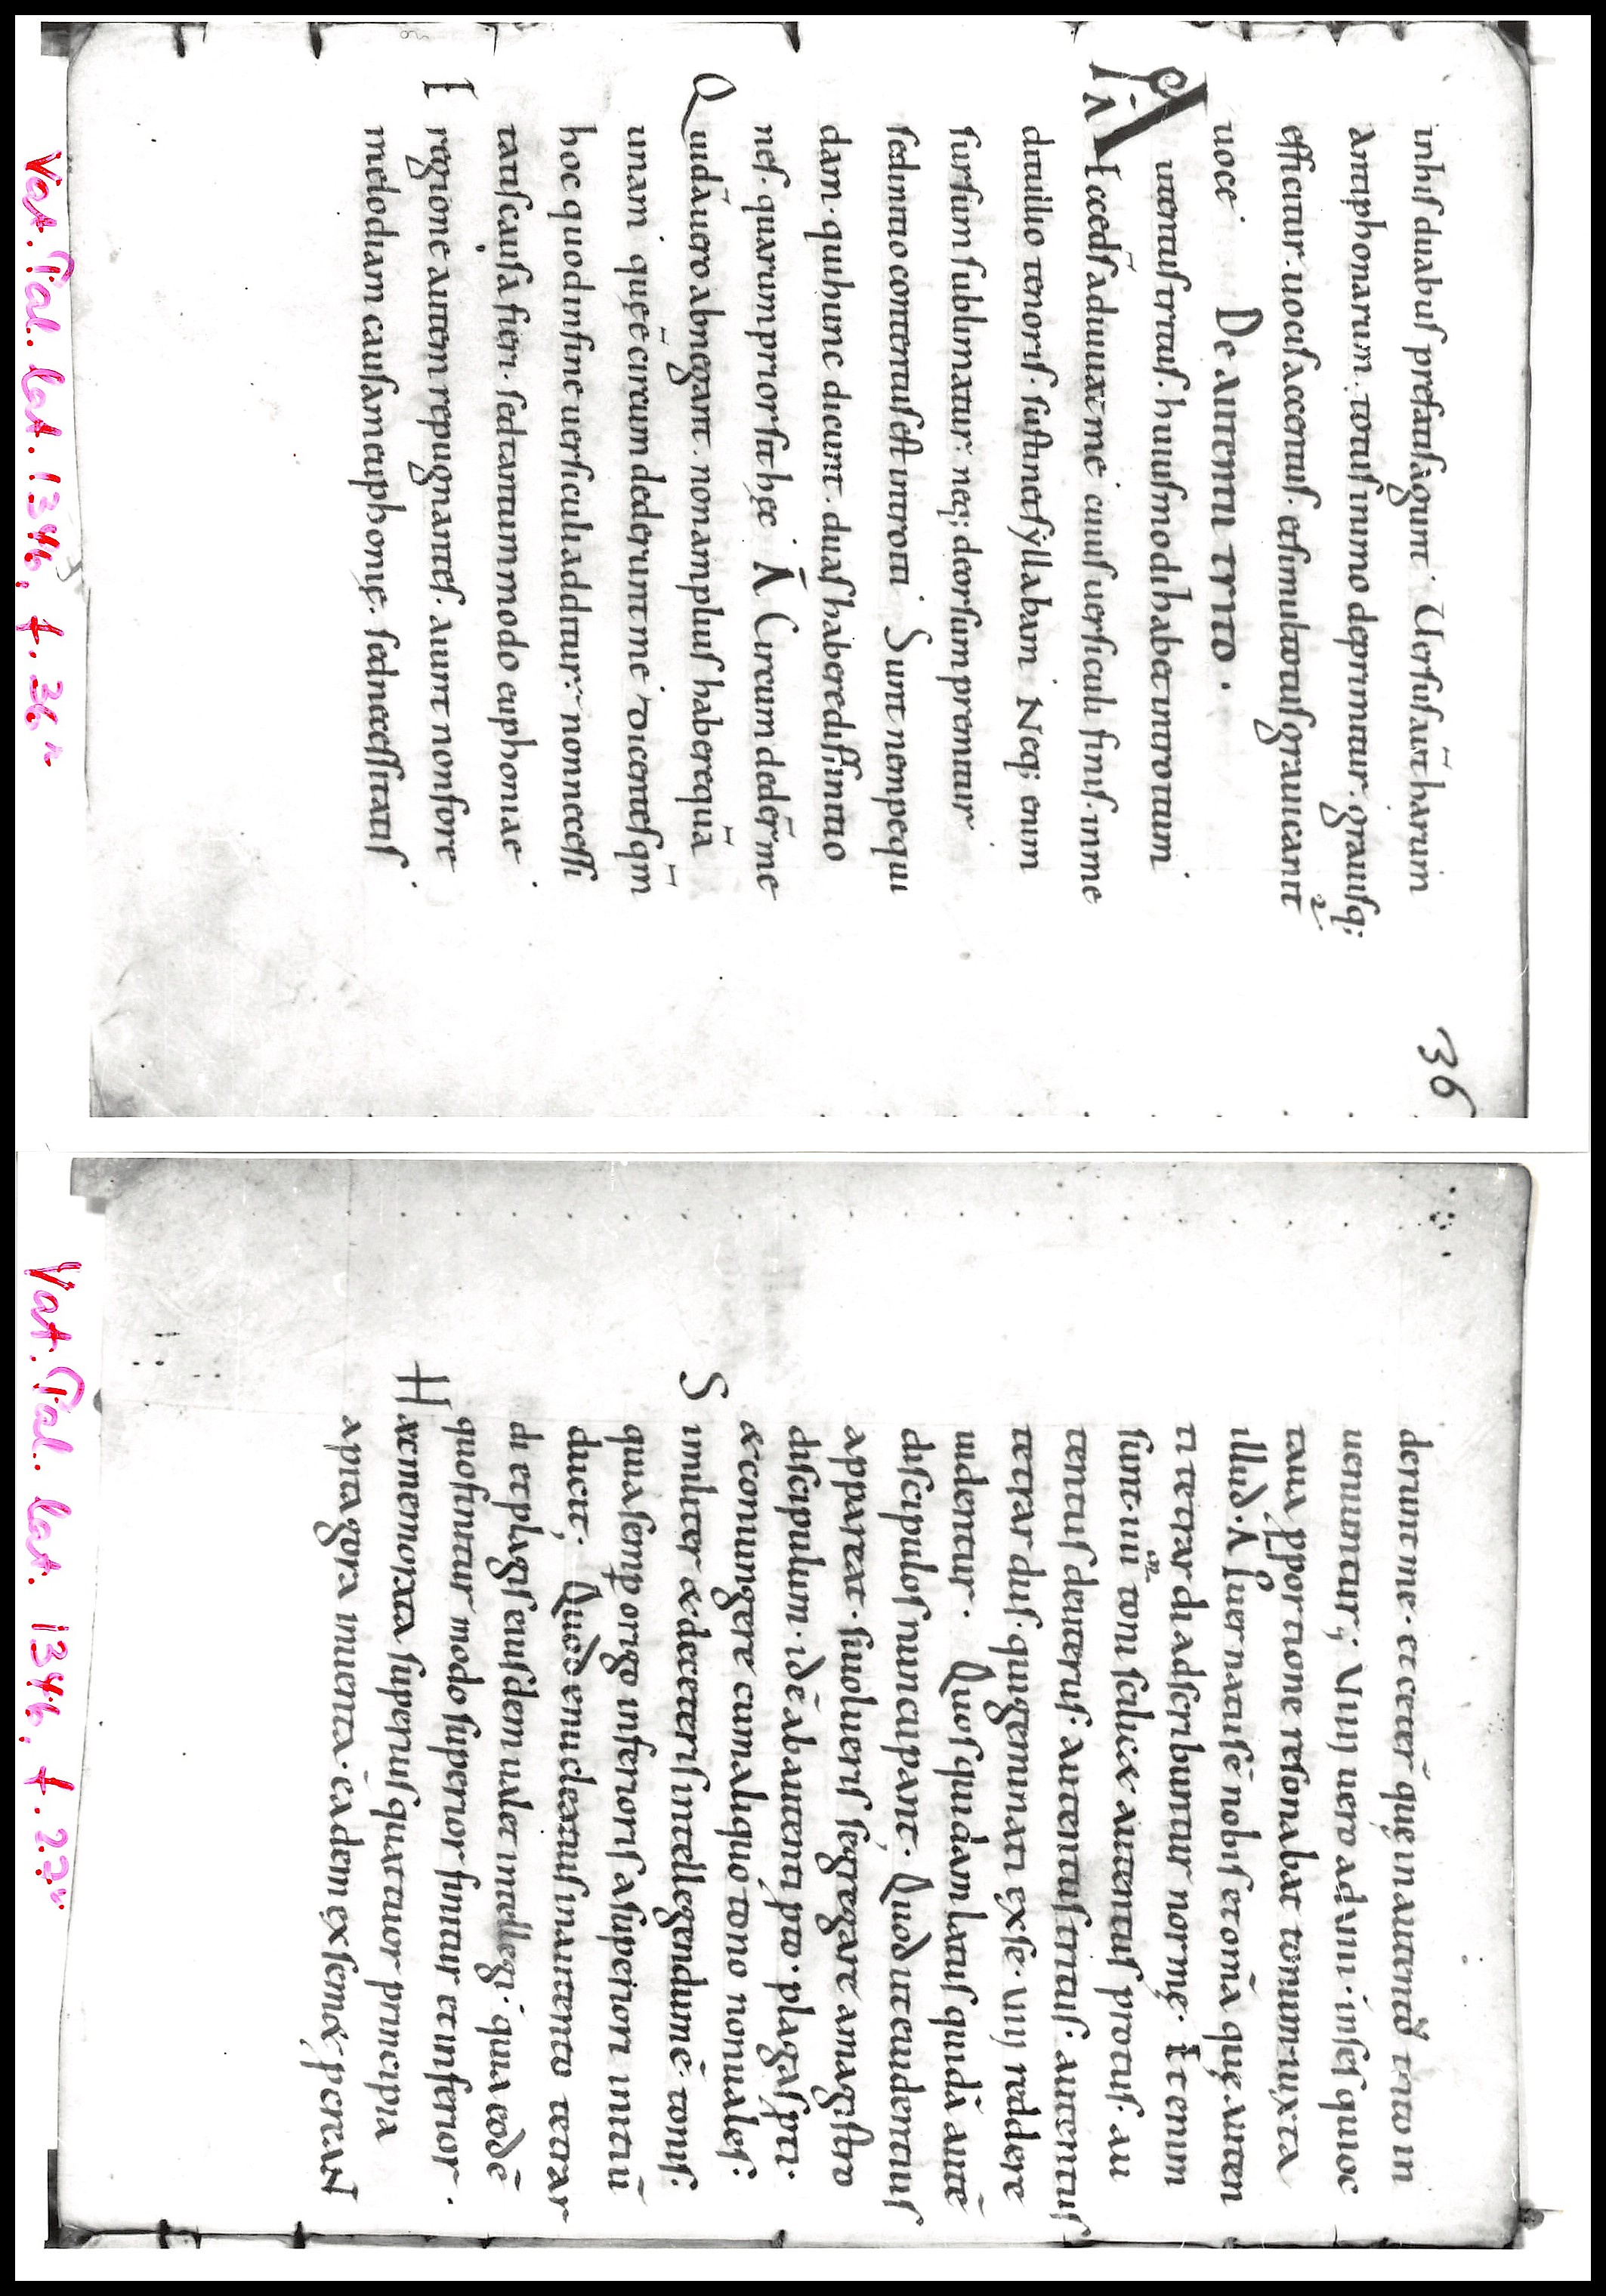 36
inhis duabus prefatis agunt. Uersus aut̄ harum
antiphonarum. totus in imo deprimitur. grauisq;
efficitur. uocis accentus. et simul totus graui cantet᷑
uoce. De autentu trito.
Autentus tritus. huiusmodi habet introitum
A̅ Accedsādiuuatime cuius uersiculi finis. in me
ditullio tenoris. sustinet syllabam. Neq; enim
sursum sublimatur. neq; deorsum premitur
sed initio contentus est introiti. Sunt nempe qui
dam. qui hunc dicunt. duas habere diffinitio
nes. quarum prior sit hęc. A̅ Circumdeder̄me
Quidā uero abnegant. non amplius haberequā
unam quęē circumdederunt me dicentes qm̄
hoc quod in fine uersiculi additur. non necessi
tatis causa fieri. sed tantummodo euphoniae
E regione autem repugnantes. aiunt non fore
melodiam causam euphonię. sed necessitatis.
Vat. Pal. lat. 1346, f. 36r
derunt me. et ceter̄ quę in autento trito in
ueniuntur; Uiij uero aduni. inses quioc
taua ꝓportione resonabat tonum. iuxta
illud. A Puer natusē nobis et omā quę auten
ti tetrardi adscribuntur normę. Et enim
sunt. iiii tonr tonus scilicet autentus protus. au
tentus deuterus. autentus tritus. autentus
tetrardus. qui geminati exse. uiij reddere
uidentur. Quos quidam latius quidā autē
discipulos nuncupant. Quod ut euidentius
appareat. si uolueris segregare amagistro
discipulum. idē ab autenti ꝓto. plagas ꝓti.
et coniungere cum aliquo tono nonuales.
Similiter et deceteris intellegendumē tonis.
quia semp origo inferioris asuperiori initiū
ducit. Quod enucleatius in autento tetrar
di et plagis eiusdem ualet intellegi. quia eodē
quo finitur modo superior finitur et inferior.
Haec memorata superius quattuor principia
apitagora inuenta. eadem exsemetꝑcreaN
Vat. Pal. lat. 1346, f. 22v